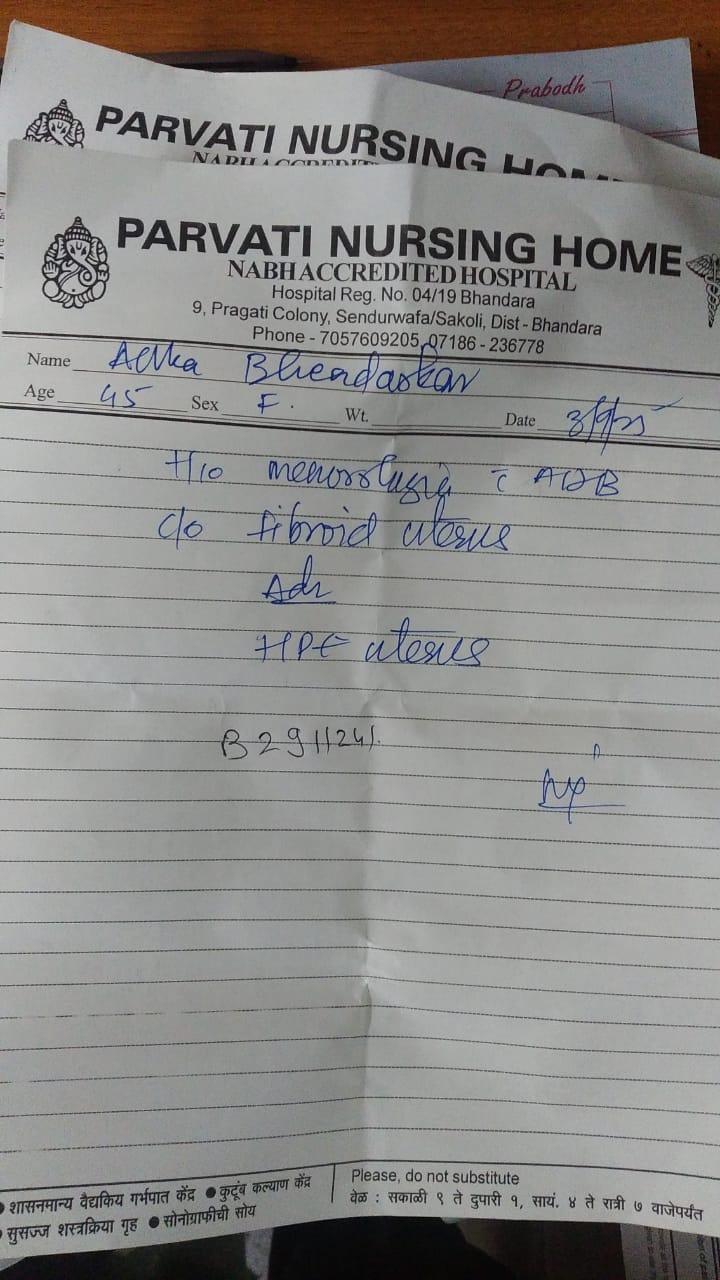 Prabodh
PARVATI NURSING HOME
PARVATI NURSING HOME
NABH ACCREDITED HOSPITAL
Hospital Reg. No. 04/19 Bhandara
9, Pragati Colony, Sendurwafa/Sakoli, Dist - Bhandara
Phone - 7057609205, 07186 - 236778
Name Bhendarkar
Age 45 Sex F. Wt. Date
H/o menorrhagia c̄ AUB
c/o fibroid uterus
Adv
HPE uterus
B2911241.
● शासनमान्य वैद्यकिय गर्भपात केंद्र ● कुटूंब कल्याण केंद्र
● सुसज्ज शस्त्रक्रिया गृह ● सोनोग्राफीची सोय
Please, do not substitute
वेळ : सकाळी ९ ते दुपारी १, सायं. ४ ते रात्री ७ वाजेपर्यंत